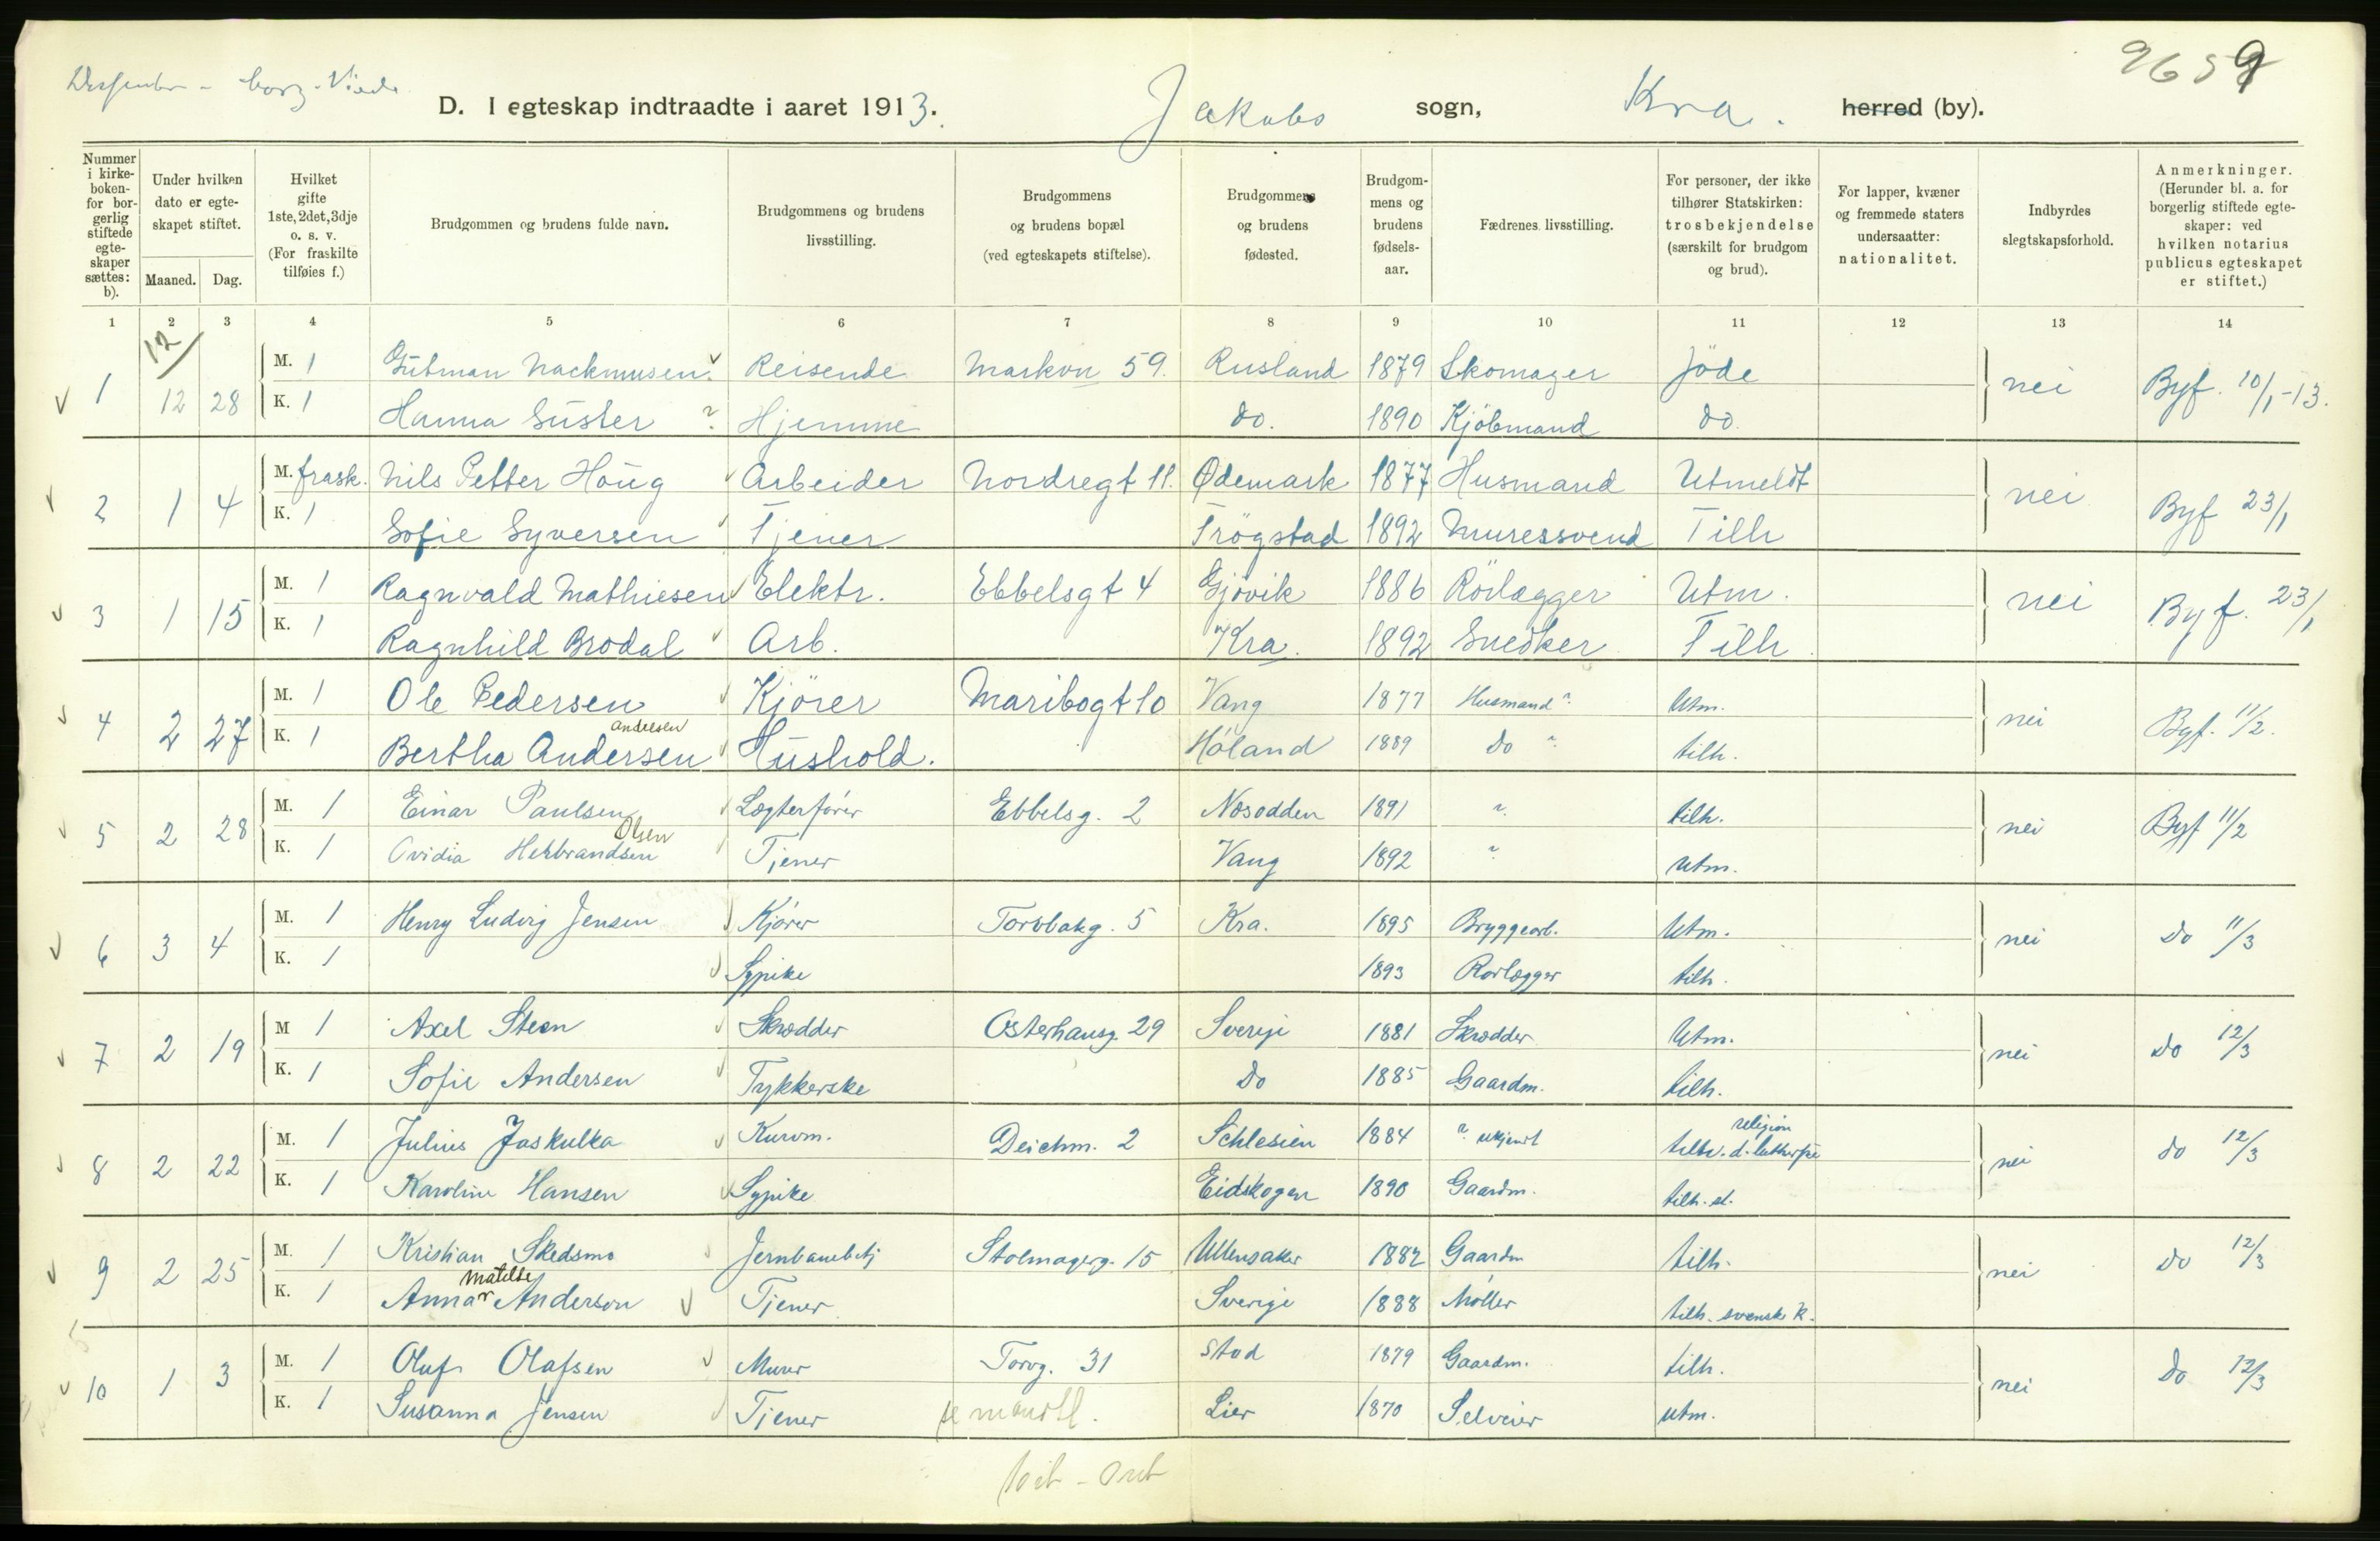 9659
D. I egteskap indtraadte i aaret 1913. Jakobs sogn, Kra. herred (by).
Nummer i kirkeboken- for borgerlig stiftede egteskaper sættes: b).
Under hvilken dato er egteskapet stiftet.
Maaned. Dag.
Hvilket gifte 1ste, 2det, 3dje o. s. v. (For fraskilte tilføies f.)
Brudgommen og brudens fulde navn.
Brudgommens og brudens livsstilling.
Brudgommens og brudens bopæl (ved egteskapets stiftelse).
Brudgommens og brudens fødested.
Brudgommens og brudens fødselsaar.
Fædrenes livsstilling.
For personer, der ikke tilhører Statskirken: trosbekjendelse (særskilt for brudgom og brud).
For lapper, kvæner og fremmede staters undersaatter: nationalitet.
Indbyrdes slegtskapsforhold.
Anmerkninger. (Herunder bl. a. for borgerlig stiftede egteskaper: ved hvilken notarius publicus egteskapet er stiftet.)
1 2 3 4 5 6 7 8 9 10 11 12 13 14
12
1 12 28 M. 1 Gutman Nackmusen Reisende Markvn 59. Rusland 1879 Skomager Jöde nei Byf. 10/1-13.
K. 1 Hanna Süster ? Hjemme do. 1890 Kjöbmand do.
2 1 4 M. frask. Nils Petter Houg Arbeider Nordregt 11. Ødemark 1877 Husmand Utmeldt nei Byf 23/1
K. 1 Sofie Syversen Tjener Trögstad 1892 Muressvend Tilh
3 1 15 M. 1 Ragnvald Mathiesen Elektr. Ebbelsgt 4 Gjövik 1886 Rörlægger Utm. nei Byf. 23/1
K. 1 Ragnhild Brodal Arb. Kra. 1892 Snedker Tilh.
4 2 27 M. 1 Ole Pedersen Kjörer Maribogt 10 Vang 1877 Husmand ? Utm. nei Byf. 11/2.
andersen
K. 1 Bertha Andersen Hushold. Höland 1889 do ? tilh.
5 2 28 M. 1 Einar Paulsen Lægterfører Ebbelsg. 2 Nesodden 1891 ? tilh. nei Byf 11/2
Olsen
K. 1 Ovidia Herbrandsen Tjener Vang 1892 ? utm.
6 3 4 M. 1 Henry Ludvig Jensen Kjører Torvbakg. 5 Kra. 1895 Bryggearb. Utm. nei Do 11/3
K. 1 Sypike 1893 Rørlægger tilh.
7 2 19 M 1 Axel Steen Skrædder Osterhausg. 29 Sverige 1881 Skrædder Utm. nei Do 12/3
K. 1 Sofie Andersen Trykkerske Do 1885 Gaardm. tilh.
religion
8 2 22 M. 1 Julius Jaskulka Kurvm. Deichm. 2 Schlesien 1884 ? ukjendt tilh. d. nei do 12/3
K. 1 Karoline Hansen Sypike Eidskogen 1890 Gaardm. tilh. st.
9 2 25 M. 1 Kristian Skedsmo Jernbanebetj Stolmagerg. 15 Ullensaker 1882 Gaardm tilh. nei Do 12/3
Matilde
K. 1 Anna Anderson Tjener Sverige 1888 Møller tilh. svensk K.
10 1 3 M. 1 Oluf Olafsen Murer Torvg. 31 Stod 1879 Gaardm. tilh. nei Do 12/3
K. 1 Susanna Jensen Tjener Lier 1870 Selveier utm.